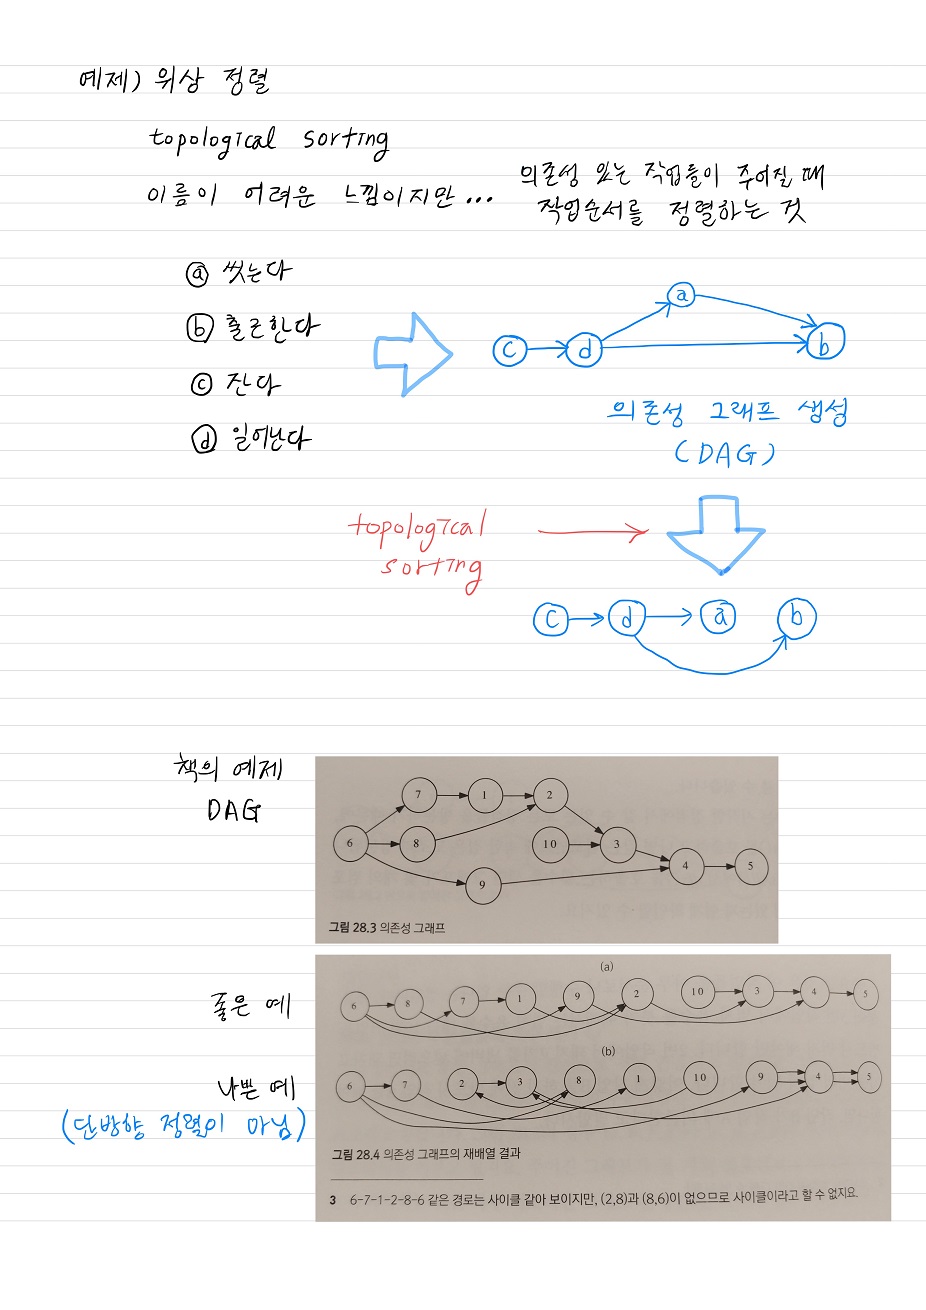 예제) 위상 정렬
topological sorting
이름이 어려운 느낌이지만...
의존성 있는 작업들이 주어질 때
작업순서를 정렬하는 것
ⓐ 씻는다
ⓑ 출근한다
ⓒ 잔다
ⓓ 일어난다
a
c d b
의존성 그래프 생성
(DAG)
topological
sorting
c d a b
책의 예제
DAG
7 1 2
6 8 10 3
9 4 5
그림 28.3 의존성 그래프
좋은 예
(a)
6 8 7 1 9 2 10 3 4 5
나쁜 예
(단방향 정렬이 아님)
(b)
6 7 2 3 8 1 10 9 4 5
그림 28.4 의존성 그래프의 재배열 결과
3 6-7-1-2-8-6 같은 경로는 사이클 같아 보이지만, (2,8)과 (8,6)이 없으므로 사이클이라고 할 수 없지요.